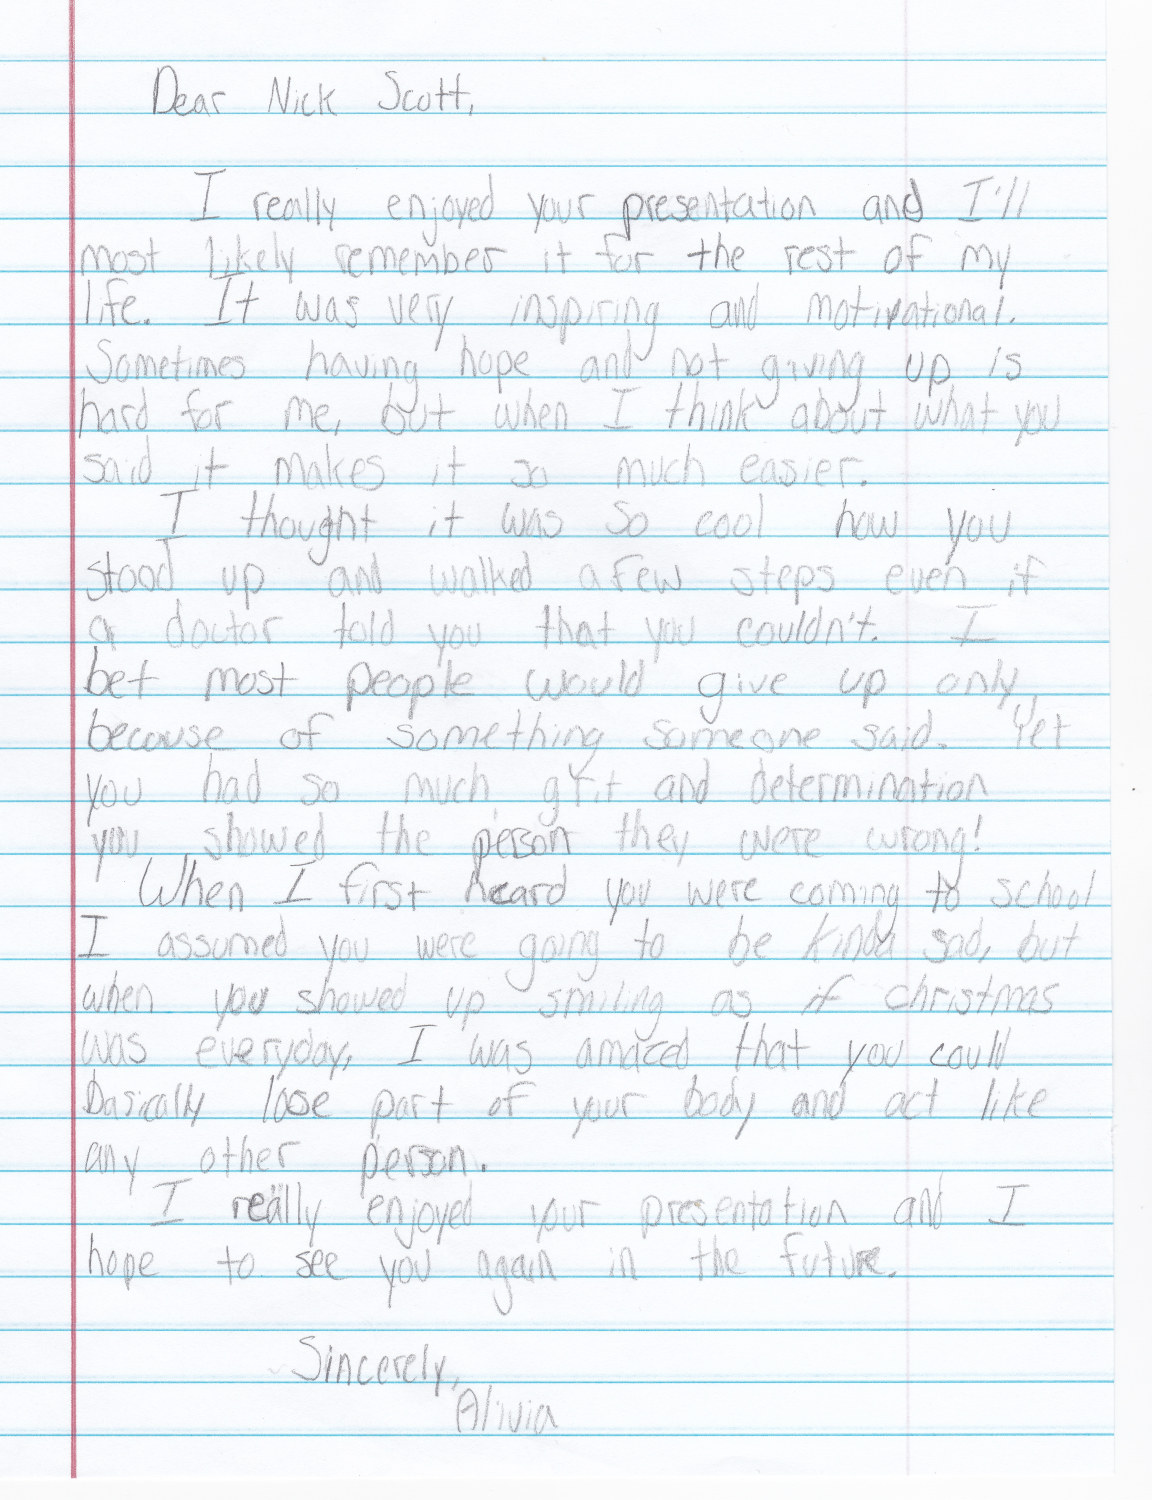 Dear Nick Scott,
I really enjoyed your presentation and I'll
most likely remember it for the rest of my
life. It was very inspiring and motivational.
Sometimes having hope and not giving up is
hard for me, but when I think about what you
said it makes it so much easier.
I thought it was so cool how you
stood up and walked a few steps even if
a doctor told you that you couldn't. I
bet most people would give up only,
because of something someone said. Yet
you had so much grit and determination
you showed the person they were wrong!
When I first heard you were coming to school
I assumed you were going to be kinda sad, but
when you showed up smiling as if christmas
was everyday, I was amazed that you could
basically lose part of your body and act like
any other person.
I really enjoyed your presentation and I
hope to see you again in the future.
Sincerely,
Alivia